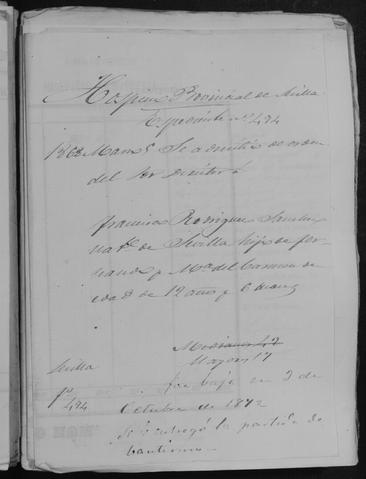 Hospicio Provincial de Sevilla
Expediente nº 494
1868 Marzo 5 Se admitió de orden
del Sor Director á
Francisco Rodriguez Sanchez
nat.l de Sevilla hijo de Fer
nando y Mª del Carmen de
edad de 12 años y 6 meses
Medianos 42
Mayores 17
Sevilla
fue baja en 3 de
nº 494
Octubre de 1872
Se le entregó la partida de
bautismo